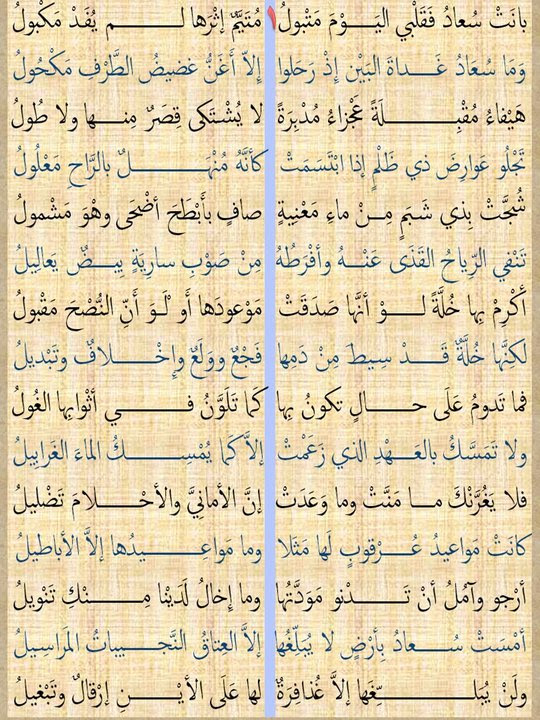 بانَتْ سُعادُ فَقَلْبي اليَـــوْمَ مَتْبولُ ١ مُتَيَّمٌ إثْرَها لــــــــم يُفَدْ مَكْبولُ
وَمَا سُعَادُ غَــــداةَ البَيْنِ إذْ رَحَلوا إلاّ أَغَنُّ غضيضُ الطَّرْفِ مَكْحُولُ
هَيْفاءُ مُقْبِــــــــلَةً عَجْزاءُ مُدْبِرَةً لا يُشْتَكى قِصَرٌ مِنــــها ولا طُولُ
تَجْلُو عَوارِضَ ذي ظَلْمٍ إذا ابْتَسَمَتْ كأنَّهُ مُنْهَــــــــلٌ بالرَّاحِ مَعْلُولُ
شُجَّتْ بِذي شَبَمٍ مِــنْ ماءِ مَعْنِيةٍ صافٍ بأَبْطَحَ أضْحَى وهْوَ مَشْمولُ
تَنْفي الرِّياحُ القَذَى عَنْــــهُ وأفْرَطُهُ مِنْ صَوْبِ سارِيَةٍ بِيـــضٌ يَعالِيلُ
أكْرِمْ بِها خُلَّةً لــــوْ أنَّها صَدَقَتْ مَوْعودَها أَو لَــوَ أَنَّ النُّصْحَ مَقْبولُ
لكنَّها خُلَّةٌ قَـــدْ سِيطَ مِنْ دَمِها فَجْعٌ ووَلَعٌ وإخْــــلافٌ وتَبْديلُ
فما تَدومُ عَلَى حــــــالٍ تكونُ بِها كَما تَلَوَّنُ فــــــــي أثْوابِها الغُولُ
ولا تَمَسَّكُ بالعَــهْدِ الذي زَعَمْتْ إلاَّ كَما يُمْسِــــــكُ الماءَ الغَرابِيلُ
فلا يَغُرَّنْكَ مــا مَنَّتْ وما وَعَدَتْ إنَّ الأمانِيَّ والأحْـــــلامَ تَضْليلُ
كانَتْ مَواعيدُ عُــــرْقوبٍ لَها مَثَلا وما مَواعِــــــيدُها إلاَّ الأباطيلُ
أرْجو وآمُلُ أنْ تَــــــدْنو مَوَدَّتُها وما إِخالُ لَدَيْنا مِــــــنْكِ تَنْويلُ
أمْسَتْ سُـــــعادُ بِأرْضٍ لا يُبَلِّغُها إلاَّ العِتاقُ النَّجــــيباتُ المَراسِيلُ
ولَنْ يُبَلــــــــــــغَها إلاَّ عُذافِرَةٌ لها عَلَى الأيْــــــنِ إرْقالٌ وتَبْغيلُ